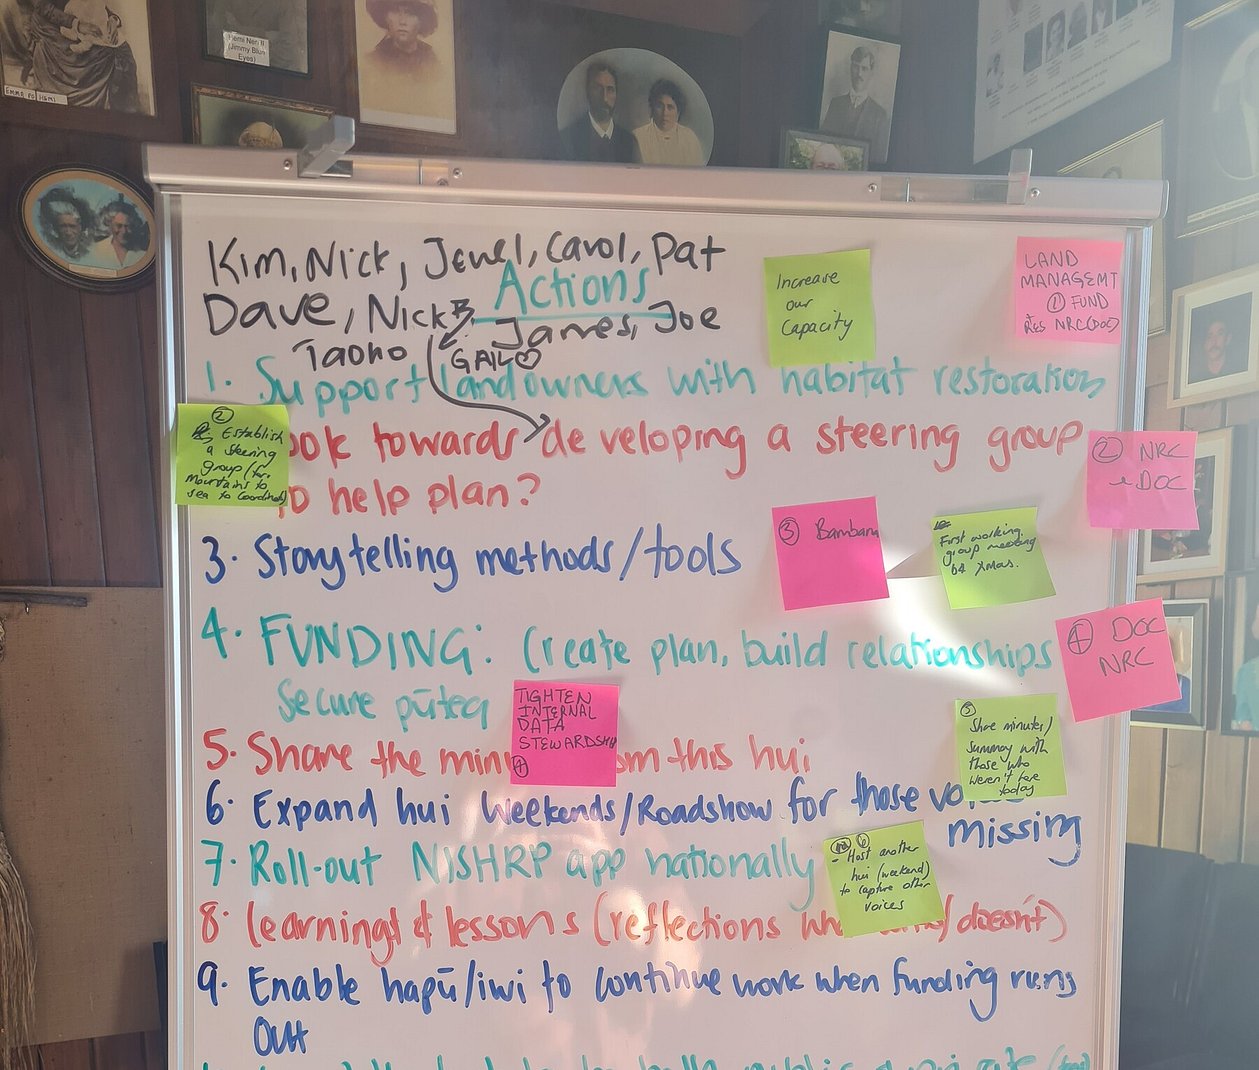 EMMA
Hemi Neri II
(Jimmy Blue
Eyes)
Kim, Nick, Jewel, Carol, Pat
Actions
Dave, Nick B, James, Joe
Taoho
GAIL♡
Increase
our
Capacity
LAND
MANAGEMT
① FUND
NRC (DOC)
1. Support landowners with habitat restoration
②
Establish
a steering
group (for
mountains to
sea to coordinate)
ook towards developing a steering group
to help plan?
② NRC
DOC
3. Storytelling methods/tools
③ Bambam
First working
group meeting
b4 Xmas.
4. FUNDING: Create plan, build relationships
Secure pūtea
④ DOC
NRC
TIGHTEN
INTERNAL
DATA
STEWARDSHIP
④
5. Share the min om this hui
⑤
Share minutes/
Summary with
those who
weren't here
today
6. Expand hui Weekends/Roadshow for those vo
missing
7. Roll-out NISHRP app nationally
⑥
- Host another
hui (weekend)
to capture other
voices
8. learnings & lessons (reflections wh /doesn't)
9. Enable hapū/iwi to continue work when funding runs
Out